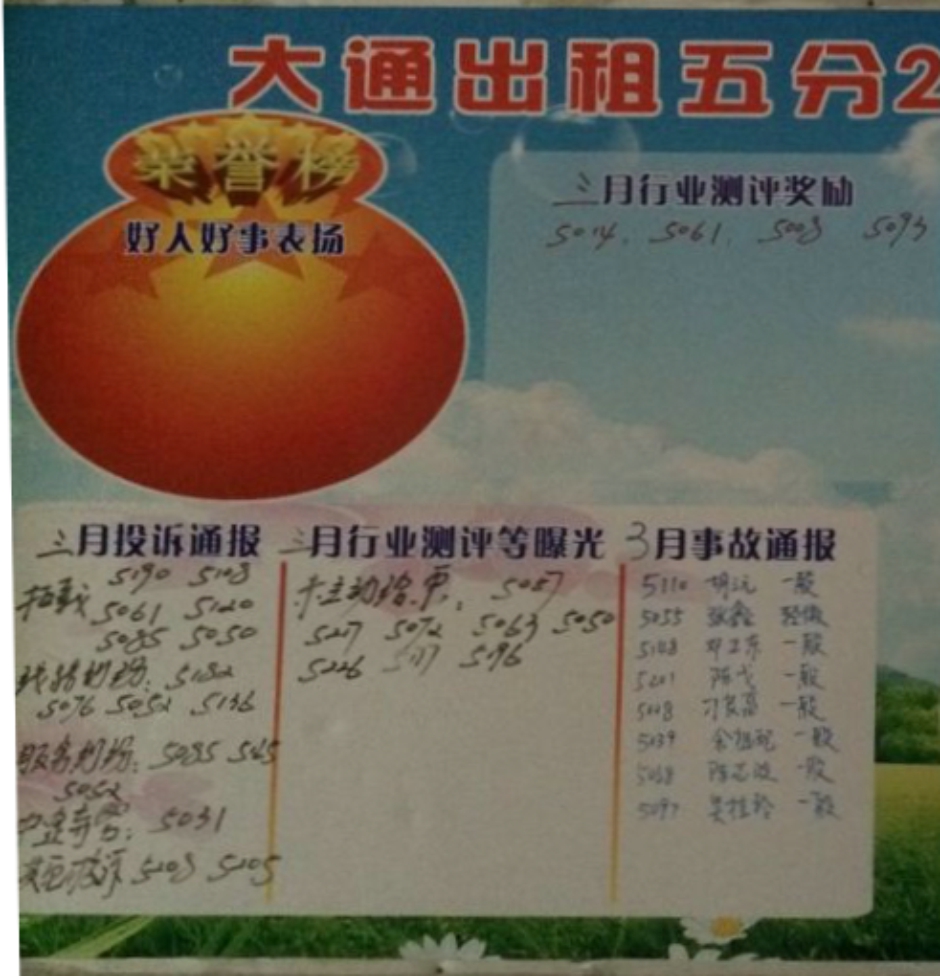 大通出租五分2
荣誉榜
好人好事表扬
三月行业测评奖励
5014. 5061. 5008 5093
三月投诉通报
5190 5108
拒载 5061 5120
5085 5050
5182
5076 5052 5136
服务纠纷: 5085 5125
5052
5031
5208 5205
三月行业测评等曝光
未主动给票: 5057
5217 5072 5063 5050
5226 5177 5196
3月事故通报
5110 一般
5055 张鑫 轻微
5108 一般
5201 一般
一般
5039 一般
一般
5097 一般